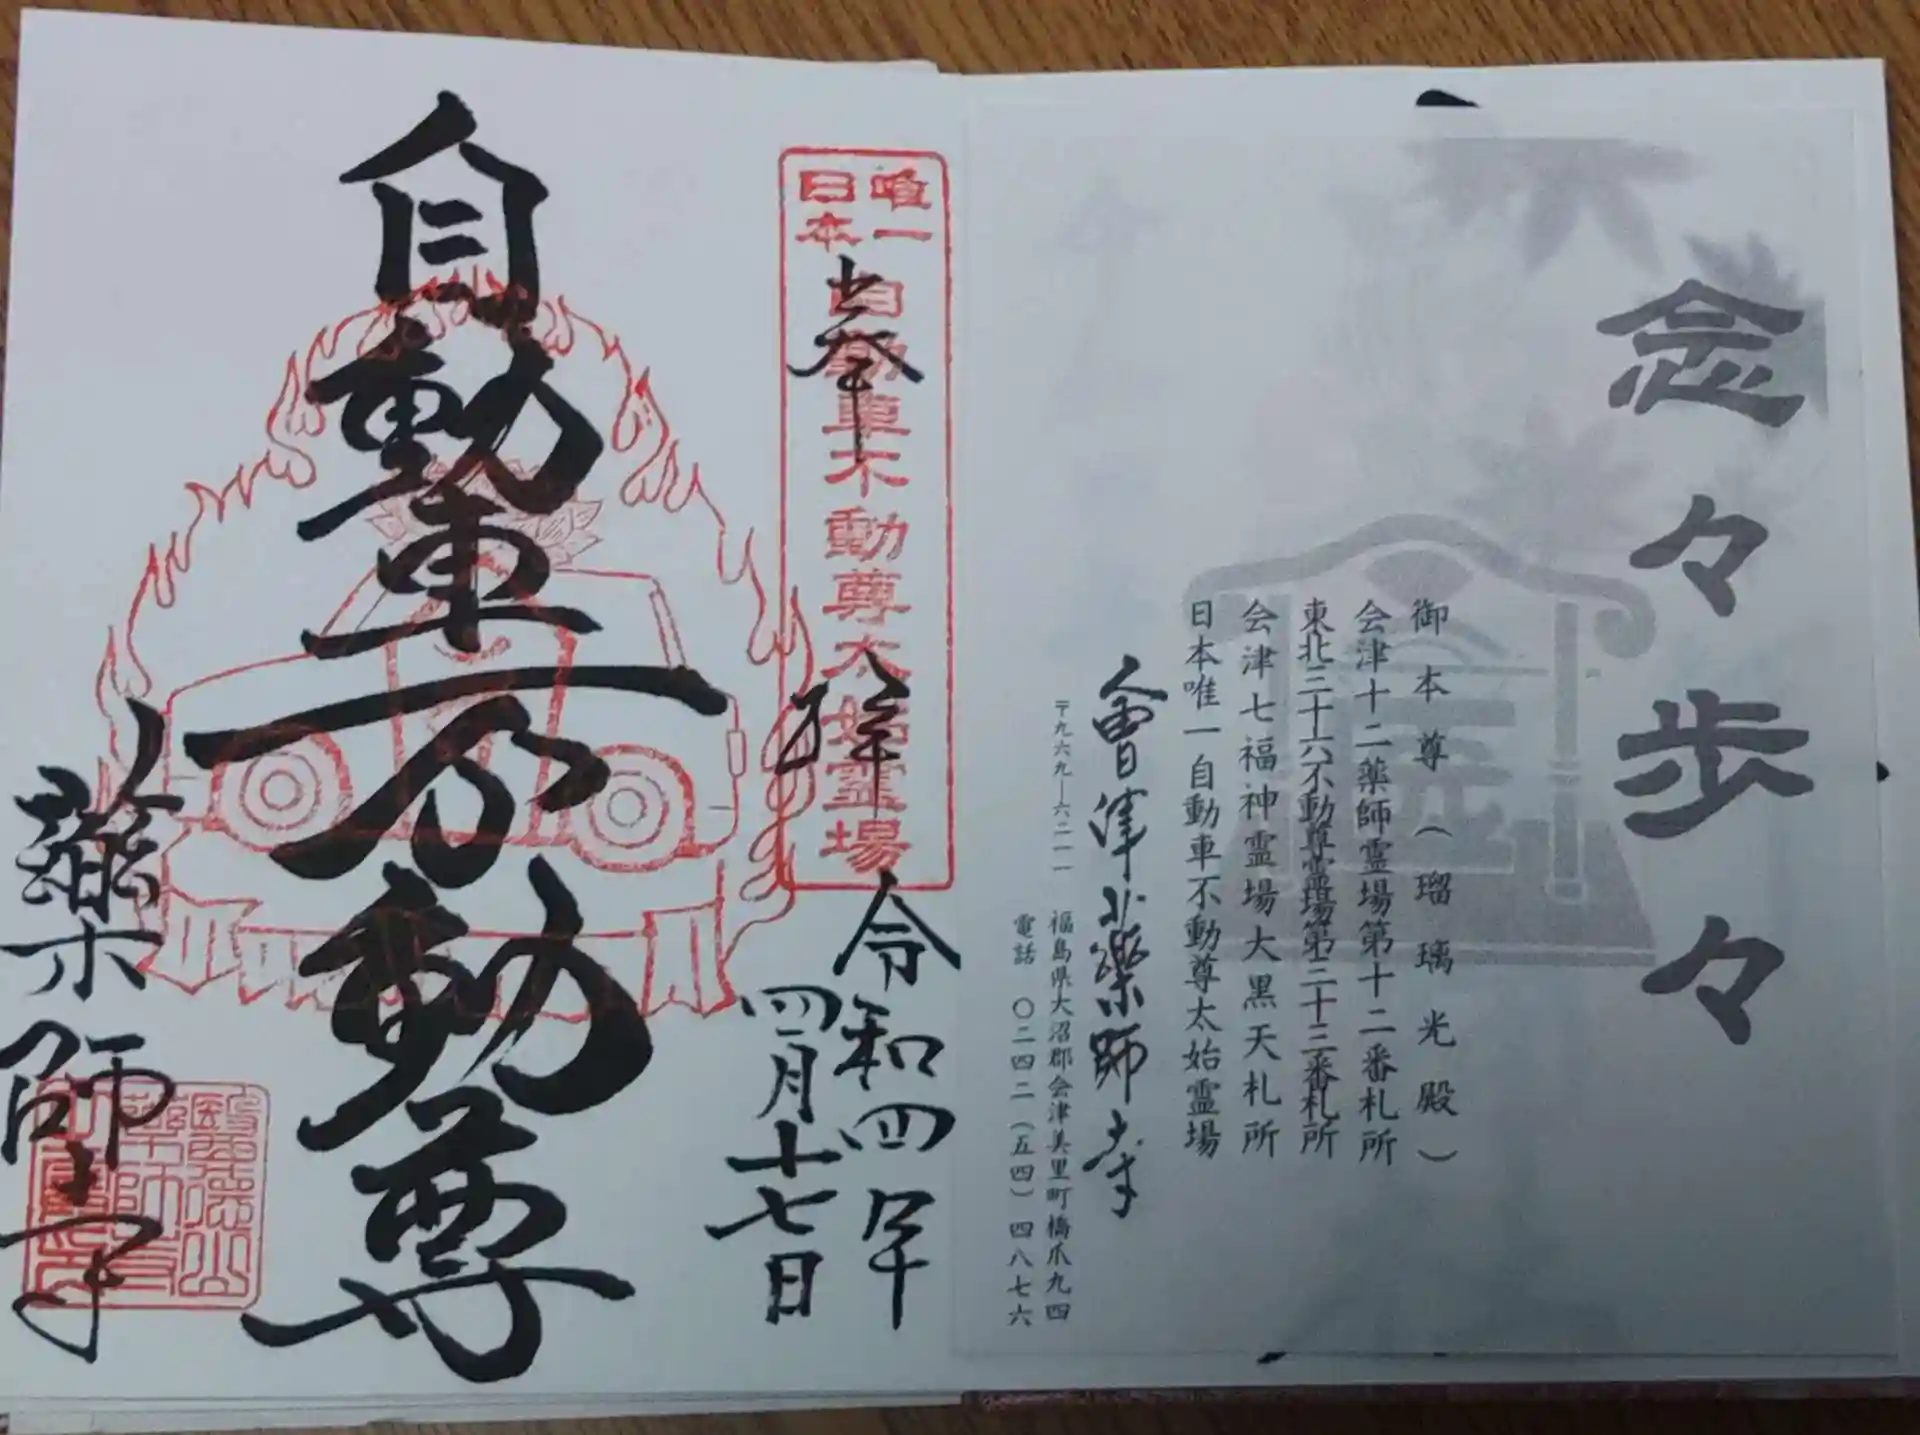 念々歩々
御本尊（瑠璃光殿）
会津十二薬師霊場第十二番札所
東北三十六不動尊霊場第三十三番札所
会津七福神霊場大黒天札所
日本唯一自動車不動尊太始霊場
會津北薬師寺
〒九六九―六二一一 福島県大沼郡会津美里町橋爪九四
電話 〇二四二（五四）四八七六
唯一
日本
自動車不動尊太始霊場
奉拝
令和四年
四月十七日
自動車不動尊
薬師寺